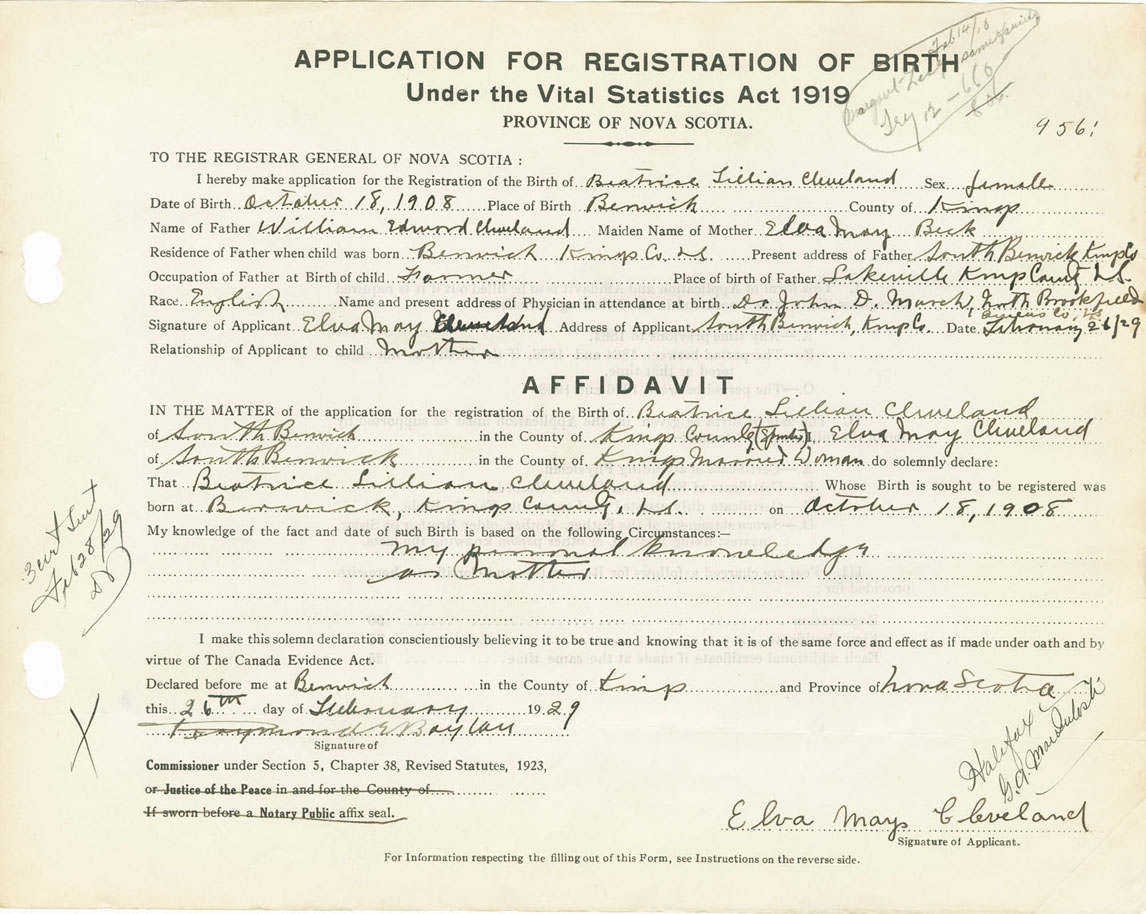 Feb 14/10
same parents
Margaret
- 660
APPLICATION FOR REGISTRATION OF BIRTH
Under the Vital Statistics Act 1919
PROVINCE OF NOVA SCOTIA.
956
TO THE REGISTRAR GENERAL OF NOVA SCOTIA :
I hereby make application for the Registration of the Birth of Beatrice Lillian Cleveland Sex female
Date of Birth October 18, 1908 Place of Birth Berwick County of Kings
Name of Father William Edward Cleveland Maiden Name of Mother Elva May Beck
Residence of Father when child was born Berwick Kings Co. N.S. Present address of Father South Berwick Kings Co
Occupation of Father at Birth of child Farmer Place of birth of Father Lakeville Kings County N.S.
Race English Name and present address of Physician in attendance at birth Dr. John D. March, North Brookfield
Queens Co, N.S.
Signature of Applicant Elva May Cleveland Address of Applicant South Berwick, Kings Co. Date February 26/29
Relationship of Applicant to child Mother
AFFIDAVIT
IN THE MATTER of the application for the registration of the Birth of Beatrice Lillian Cleveland
of South Berwick in the County of Kings County (Spinster) I, Elva May Cleveland
of South Berwick in the County of Kings Married Woman do solemnly declare:
That Beatrice Lillian Cleveland Whose Birth is sought to be registered was
born at Berwick, Kings County, N.S. on October 18, 1908
My knowledge of the fact and date of such Birth is based on the following Circumstances:—
My personal knowledge
as Mother
3 cert sent
Feb 28/29
I make this solemn declaration conscientiously believing it to be true and knowing that it is of the same force and effect as if made under oath and by
virtue of The Canada Evidence Act.
Declared before me at Berwick in the County of Kings and Province of Nova Scotia
this 26th day of February 1929
Signature of
Commissioner under Section 5, Chapter 38, Revised Statutes, 1923,
or Justice of the Peace in and for the County of
If sworn before a Notary Public affix seal.
Halifax
Elva May Cleveland
Signature of Applicant.
For Information respecting the filling out of this Form, see Instructions on the reverse side.